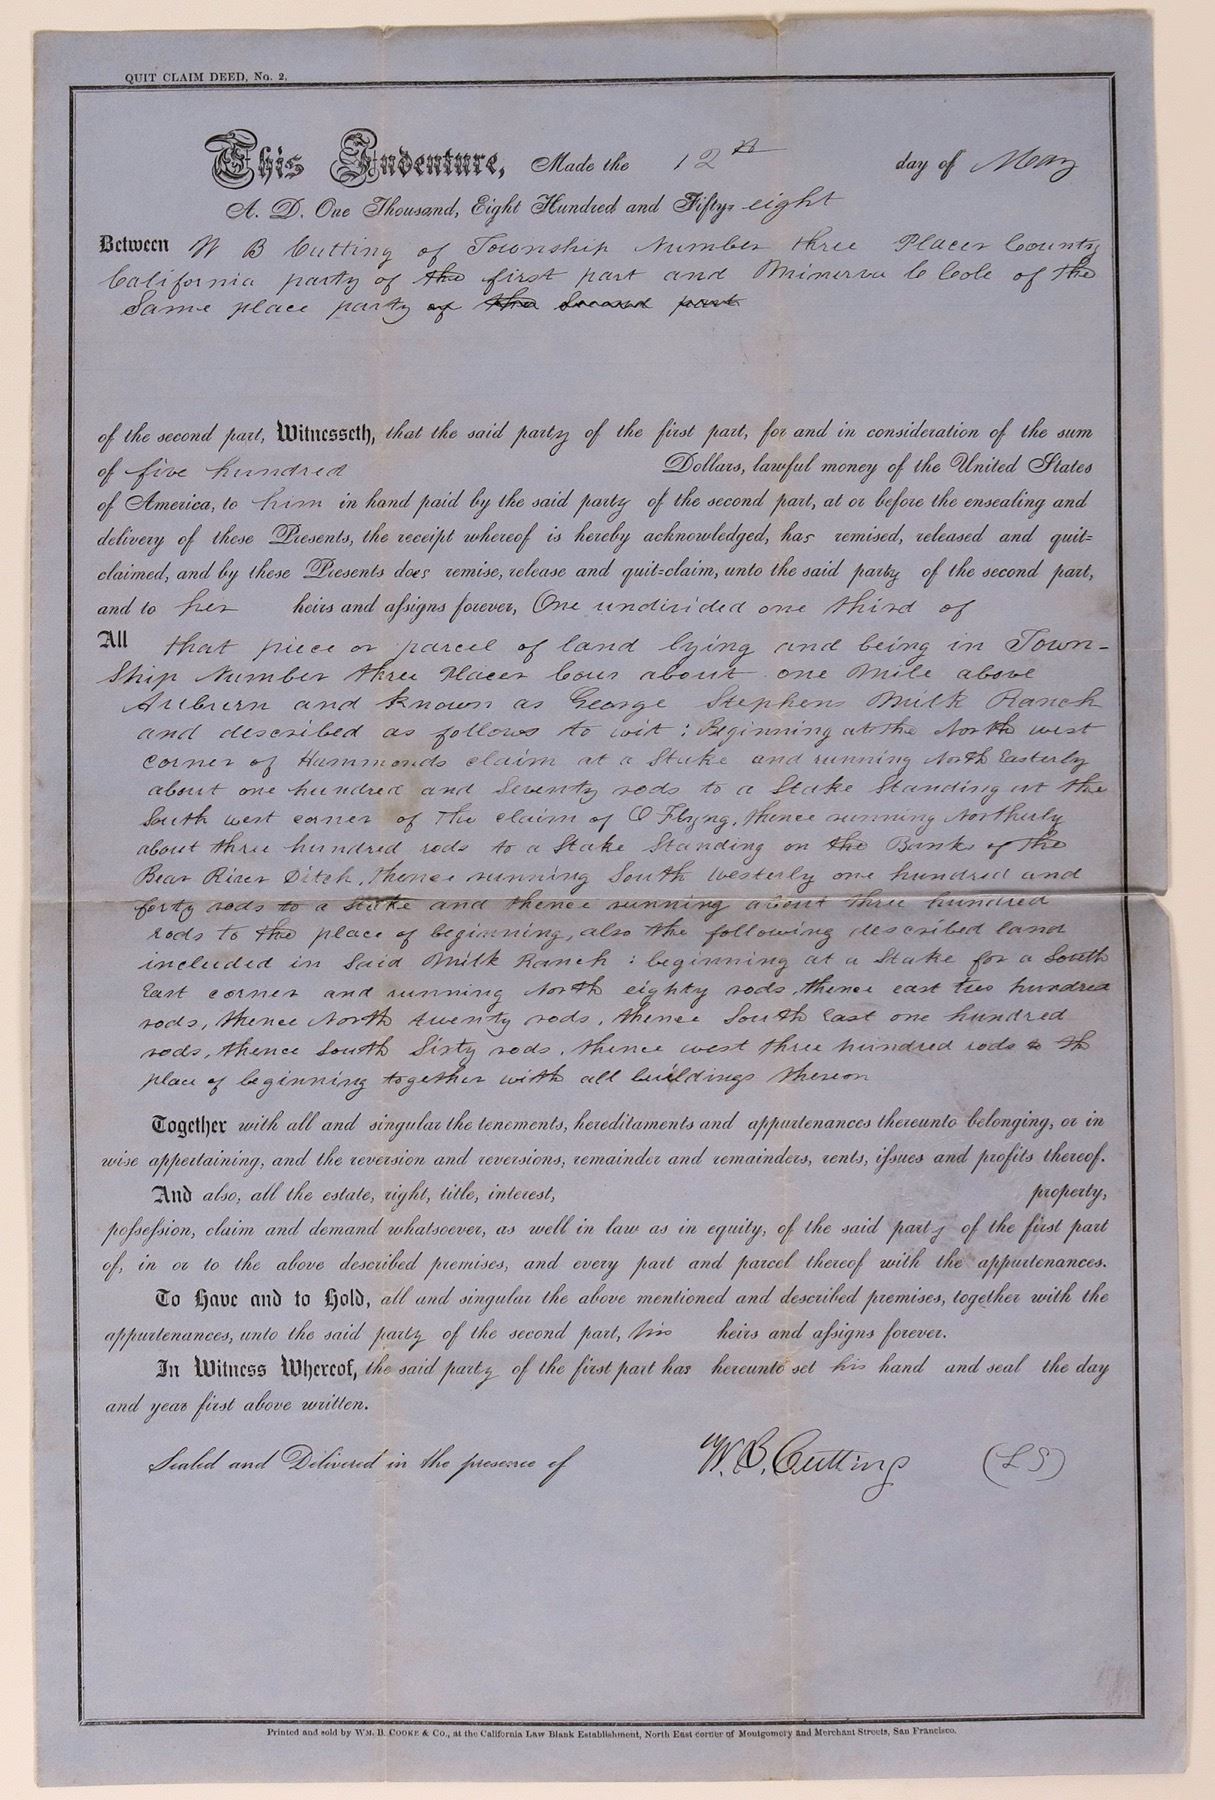 QUIT CLAIM DEED, No. 2.
This Indenture, Made the 12th day of May
A. D. One Thousand, Eight Hundred and Fifty-eight
Between W B Cutting of Township Number three Placer County
California party of the first part and Minerva C Cole of the
Same place party of the Second part
of the second part, Witnesseth, that the said party of the first part, for and in consideration of the sum
of five hundred Dollars, lawful money of the United States
of America, to him in hand paid by the said party of the second part, at or before the ensealing and
delivery of these Presents, the receipt whereof is hereby acknowledged, has remised, released and quit=
claimed, and by these Presents does remise, release and quit=claim, unto the said party of the second part,
and to her heirs and assigns forever, One undivided one third of
All that piece or parcel of land lying and being in Town-
Ship Number three Placer Coun about one Mile above
Auburn and known as George Stephens Milk Ranch
and described as follows to wit : Beginning at the North west
corner of Hammonds claim at a Stake and running North Easterly
about one hundred and Seventy rods to a Stake Standing at the
South west corner of the claim of O Flyng, thence running Northerly
about three hundred rods to a Stake Standing on the Banks of the
Bear River Ditch, thence running South westerly one hundred and
forty rods to a Stake and thence running about three hundred
rods to the place of beginning, also the following described land
included in Said Milk Ranch : beginning at a Stake for a South
East corner and running North eighty rods, thence east two hundred
rods, thence North twenty rods, thence South East one hundred
rods, thence South Sixty rods, thence west three hundred rods to th
place of beginning together with all buildings thereon
Together with all and singular the tenements, hereditaments and appurtenances thereunto belonging, or in
wise appertaining, and the reversion and reversions, remainder and remainders, rents, issues and profits thereof.
And also, all the estate, right, title, interest, property,
possession, claim and demand whatsoever, as well in law as in equity, of the said party of the first part
of, in or to the above described premises, and every part and parcel thereof with the appurtenances.
To Have and to Hold, all and singular the above mentioned and described premises, together with the
appurtenances, unto the said party of the second part, his heirs and assigns forever.
In Witness Whereof, the said party of the first part has hereunto set his hand and seal the day
and year first above written.
Sealed and Delivered in the presence of W. B. Cutting (L S)
Printed and sold by WM. B. COOKE & CO., at the California Law Blank Establishment, North East corner of Montgomery and Merchant Streets, San Francisco.